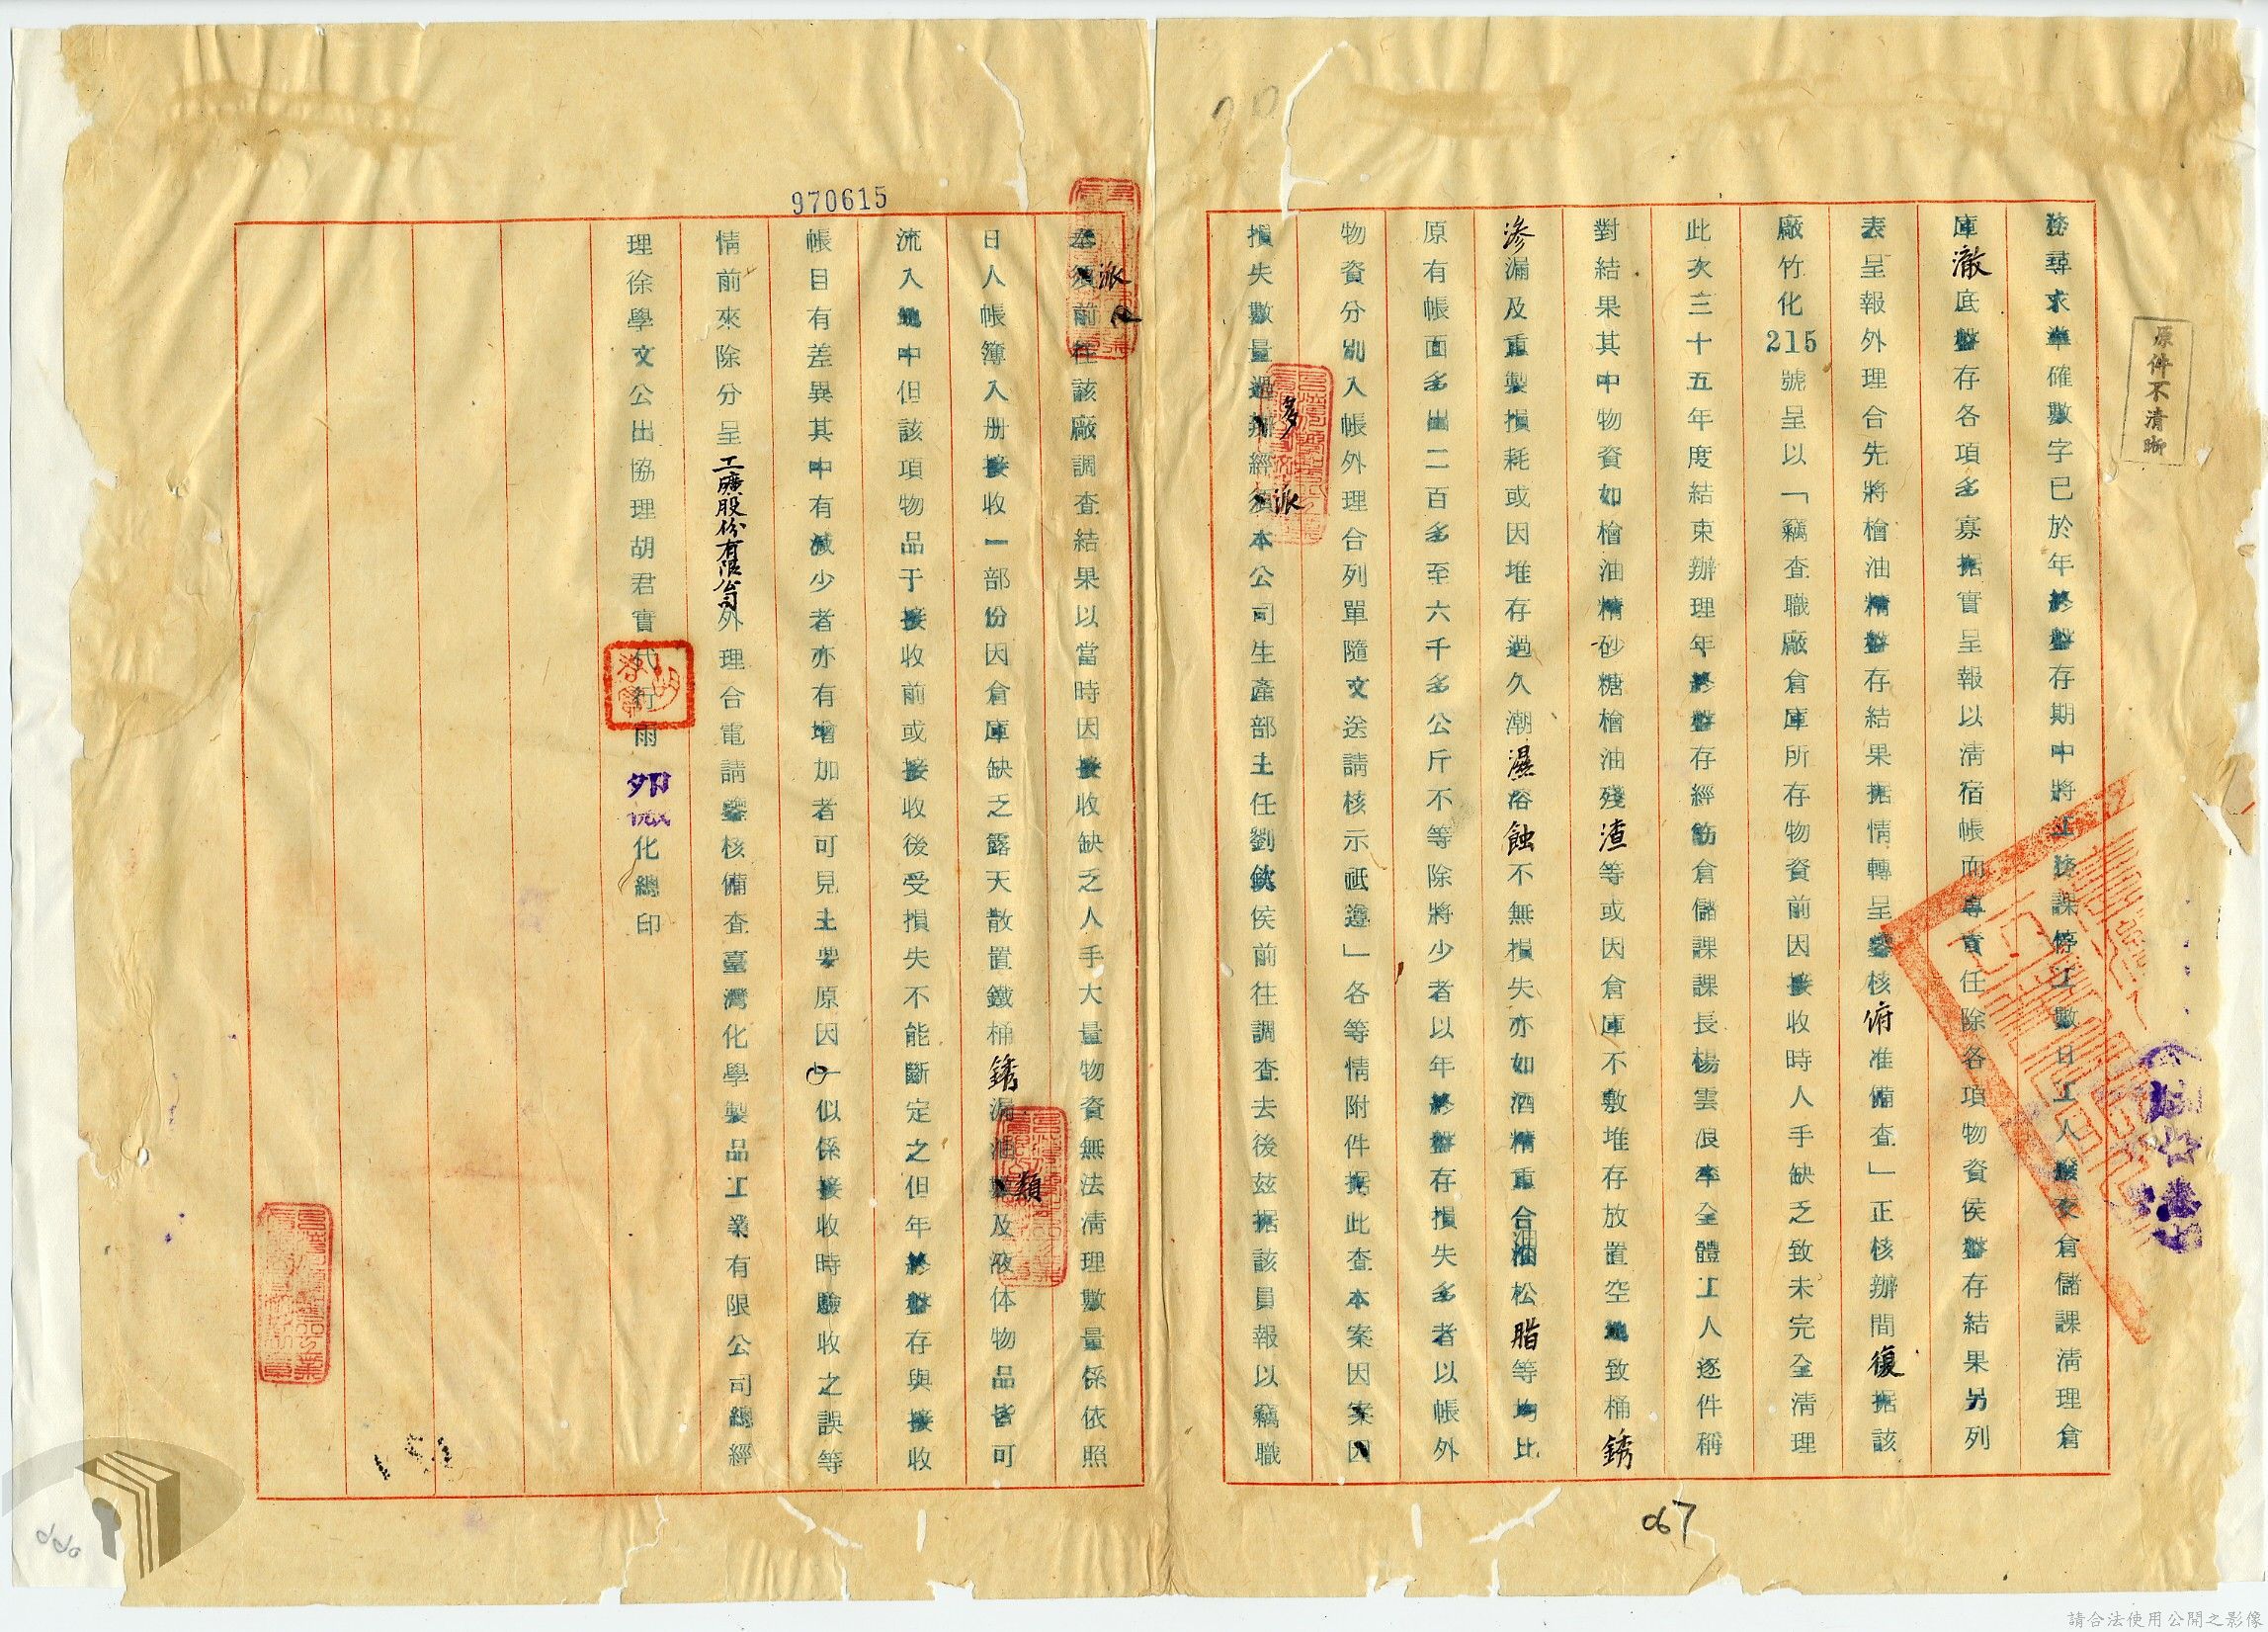 原件不清晰
務尋求準確數字已於年終盤存期中將工務課停工數日工人撥交倉儲課清理倉
庫澈底盤存各項多寡据實呈報以清宿帳而專責任除各項物資侯盤存結果另列
表呈報外理合先將檜油精盤存結果据情轉呈鑒核俯准備查」正核辦間復据該
廠竹化215號呈以「竊查職廠倉庫所存物資前因接收時人手缺乏致未完全清理
此次三十五年度結束辦理年終盤存經飭倉儲課課長楊雲浪率全體工人逐件稱
對結果其中物資如檜油精砂糖檜油殘渣等或因倉庫不敷堆存放置空地致桶銹
滲漏及重製損耗或因堆存過久潮濕溶蝕不無損失亦如酒精重合油松脂等均比
原有帳面多出二百多至六千多公斤不等除將少者以年終盤存損失多者以帳外
物資分別入帳外理合列單隨文送請核示祗遵」各等情附件据此查本案因
損失數量過多經派本公司生產部主任劉欽侯前往調查去後玆据該員報以竊職
奉派前往該廠調查結果以當時因接收缺乏人手大量物資無法清理數量係依照
日人帳簿入册接收一部份因倉庫缺乏露天散置鐵桶銹漏油類及液体物品皆可
流入地中但該項物品于接收前或接收後受損失不能斷定之但年終盤存與接收
帳目有差異其中有減少者亦有增加者可見主要原因似係接收時驗收之誤等
情前來除分呈工礦股份有限公司外理合電請鑒核備查臺灣化學製品工業有限公司總經
理徐學文公出協理胡君實代行雨卯化總印
970615
067
請合法使用公開之影像